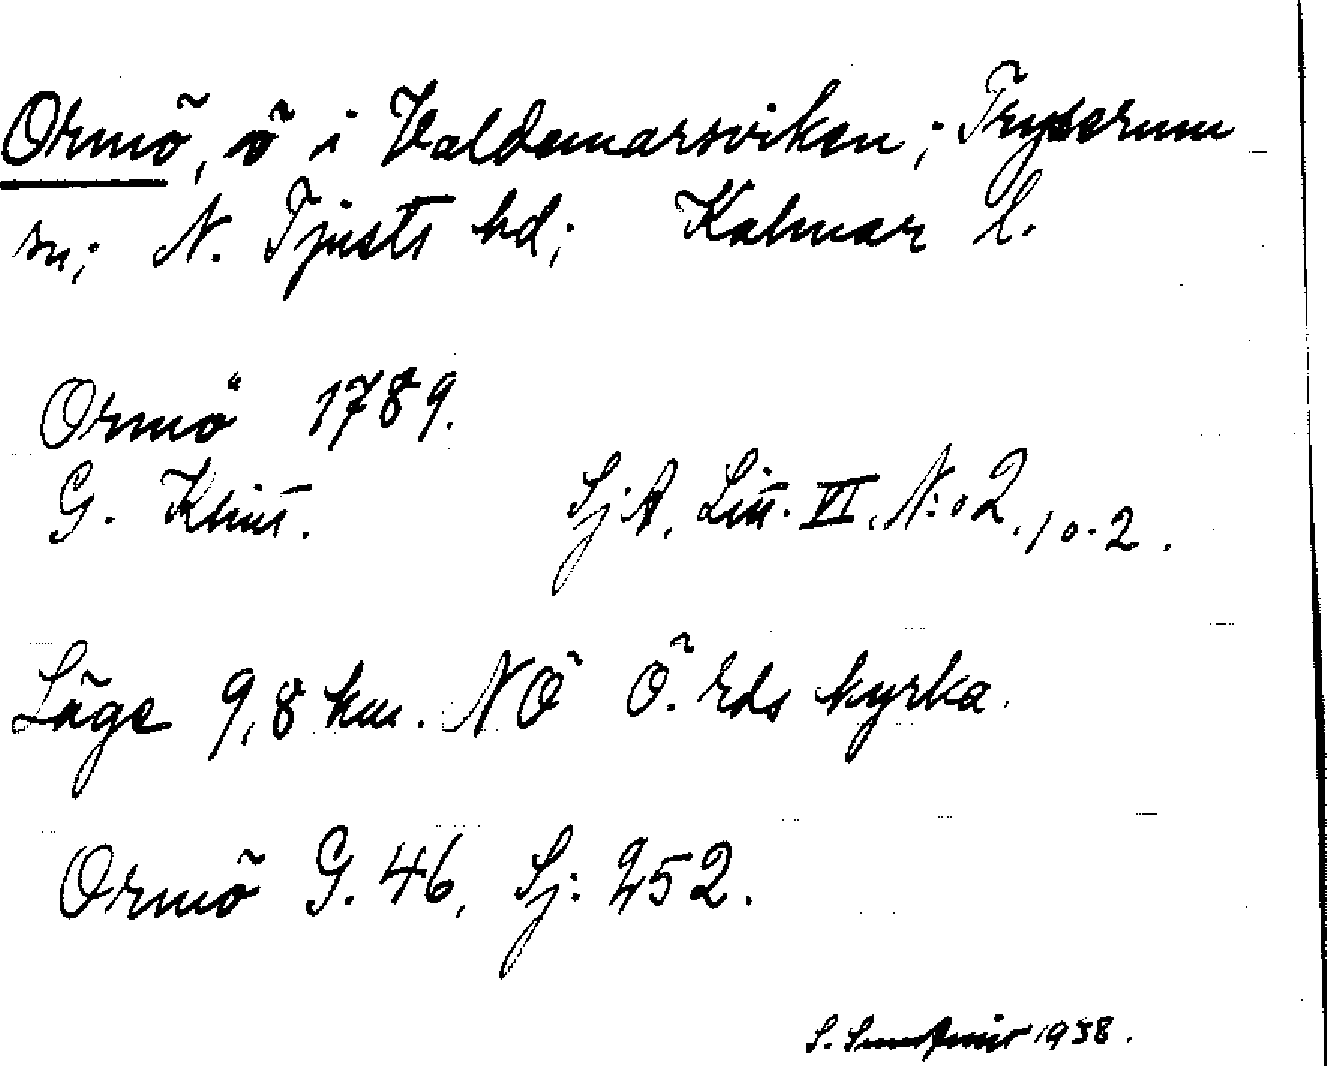 Ormö, ö i Valdemarsviken; Tryserum
sn; N. Tjusts hd; Kalmar l.
Ormö 1789.
G. Klint. Sj. A. Litt. VI. N:o 2. 10.2.
Läge 9,8 km. NÖ Ö. Eds kyrka.
Ormö G. 46, Sj: 252.
S. 1938.